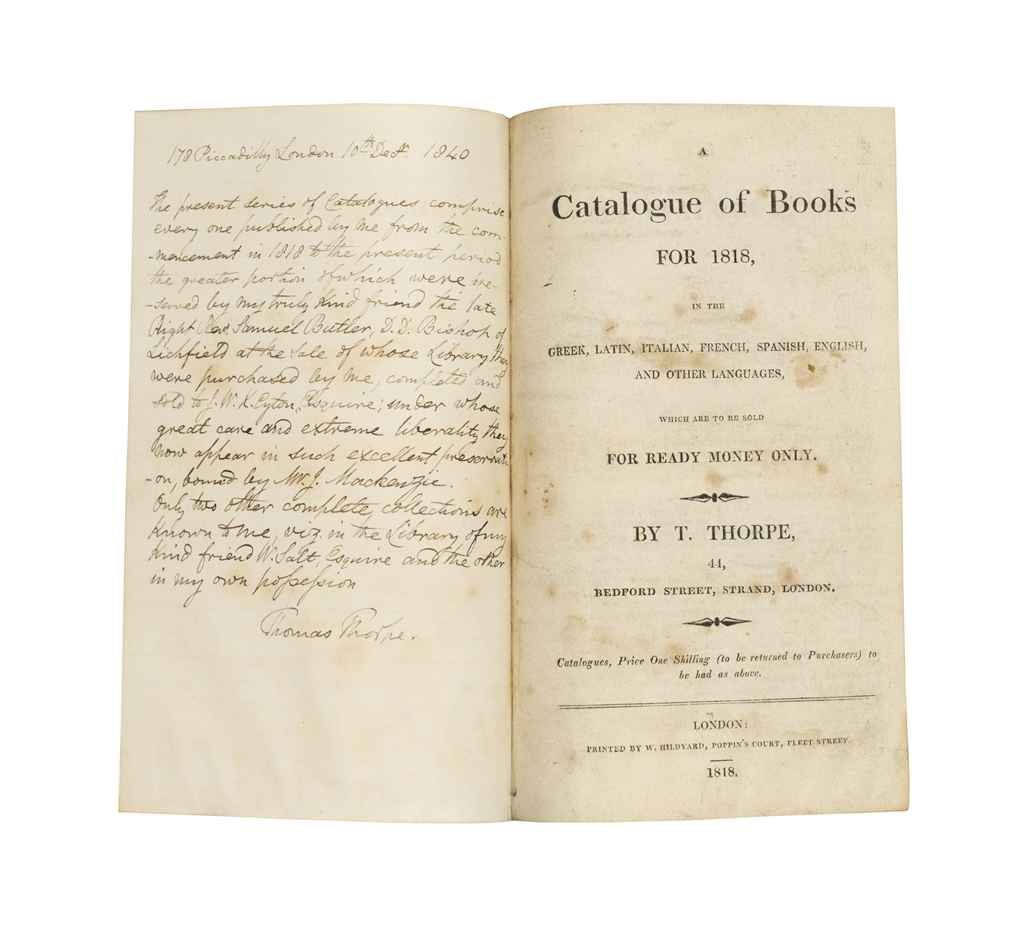 178 Piccadilly London 10th Decr. 1840
The present series of Catalogues comprise
every one published by me from the com-
-mencement in 1818 to the present period
the greater portion of which were re-
-served by my truly kind friend the late
Right Rev. Samuel Butler, D.D. Bishop of
Lichfield at the Sale of whose Library they
were purchased by me, completed and
sold to J. W. K. Eyton, Esquire; under whose
great care and extreme liberality they
now appear in such excellent preservati-
-on, bound by Mr. J. Mackenzie.
Only two other complete collections are
known to me, viz. in the Library of my
kind friend W. Salt, Esquire and the other
in my own possession
Thomas Thorpe.
A
Catalogue of Books
FOR 1818,
IN THE
GREEK, LATIN, ITALIAN, FRENCH, SPANISH, ENGLISH,
AND OTHER LANGUAGES,
WHICH ARE TO BE SOLD
FOR READY MONEY ONLY.
BY T. THORPE,
44,
BEDFORD STREET, STRAND, LONDON.
Catalogues, Price One Shilling (to be returned to Purchasers) to
be had as above.
LONDON:
PRINTED BY W. HILDYARD, POPPIN'S COURT, FLEET STREET.
1818.